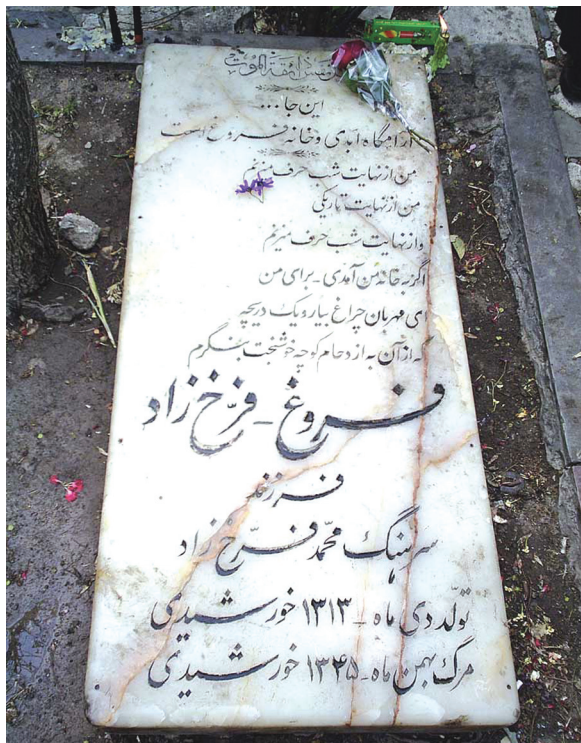 کل نفس ذائقة الموت
این جا...
آرامگاه ابدی و خانه فروغ است
من از نهایت شب حرف میزنم
من از نهایت تاریکی
و از نهایت شب حرف میزنم
اگر به خانه من آمدی - برای من
ای مهربان چراغ بیار و یک دریچه
که از آن به ازدحام کوچه خوشبخت بنگرم
فروغ - فرّخ زاد
فرزند
سرهنگ محمّد فرّخ زاد
تولّد دی ماه - ۱۳۱۳ خورشیدی
مرگ بهمن ماه - ۱۳۴۵ خورشیدی